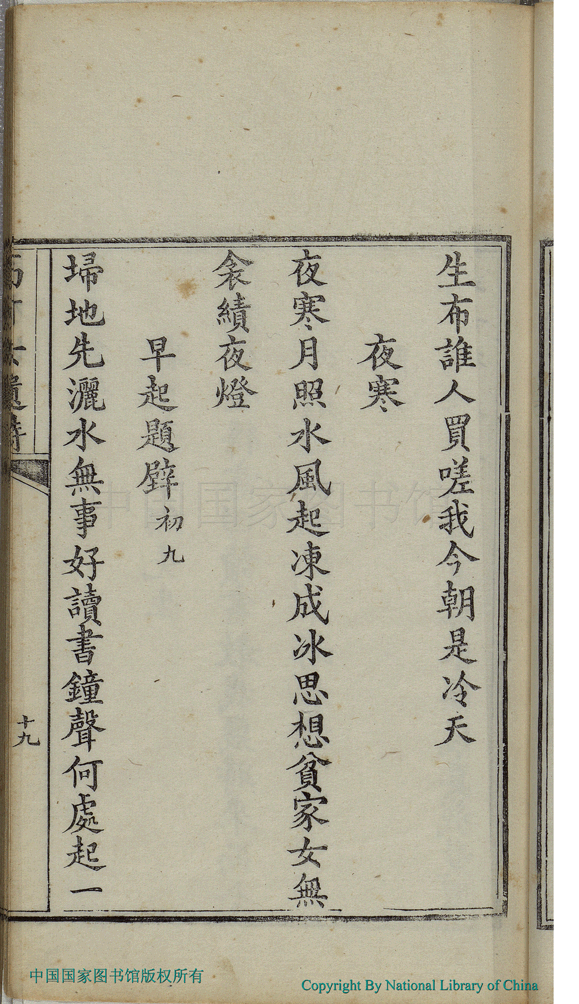 生布誰人買嗟我今朝是冷天
夜寒
夜寒月照水風起凍成冰思想貧家女無
衾績夜燈
早起題壁初九
埽地先灑水無事好讀書鐘聲何處起一
十九
中国国家图书馆
中国国家图书馆版权所有
Copyright By National Library of China